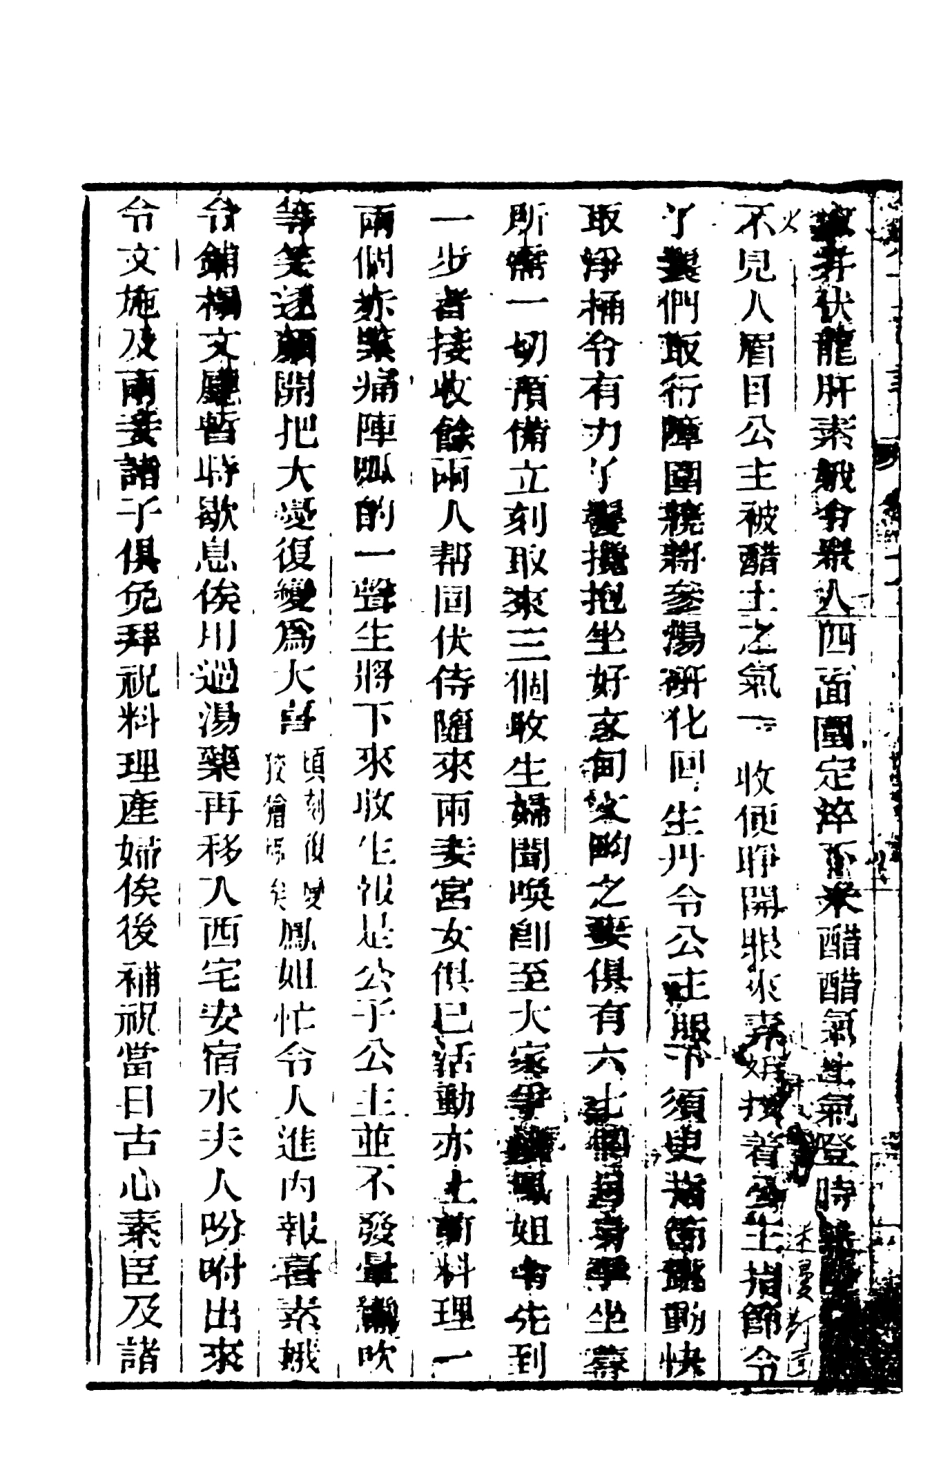 伏龍肝素娥令眾人四面圍定淬下來醋醋氣土氣登時
不見人眉目公主被醋土之氣一收便睜開眼來素娥按着公主指節令
了鬟們取行障圍繞將參湯研化回生丹令公主服下須臾指節跳動快
取淨桶令有力了鬟攙抱坐好玄甸文畇之妻俱有六七個月身孕坐蓐
所需一切預備立刻取來三個收生婦聞喚卽至大家爭鳳姐令先到
一步者接收餘兩人帮同伏侍隨來兩妾宮女俱已活動亦上前料理一
兩個赤緊痛陣呱的一聲生將下來收生報是公子公主並不發暈吹
等笑逐顏開把大憂復變爲大喜
頃刻復變
狡獪極矣
鳳姐忙令人進內報喜素娥
令鋪榻文廳暫時歇息俟用過湯藥再移入西宅安宿水夫人吩咐出來
令文施及兩妾諸子俱免拜祝料理產婦俟後補祝當日古心素臣及諸